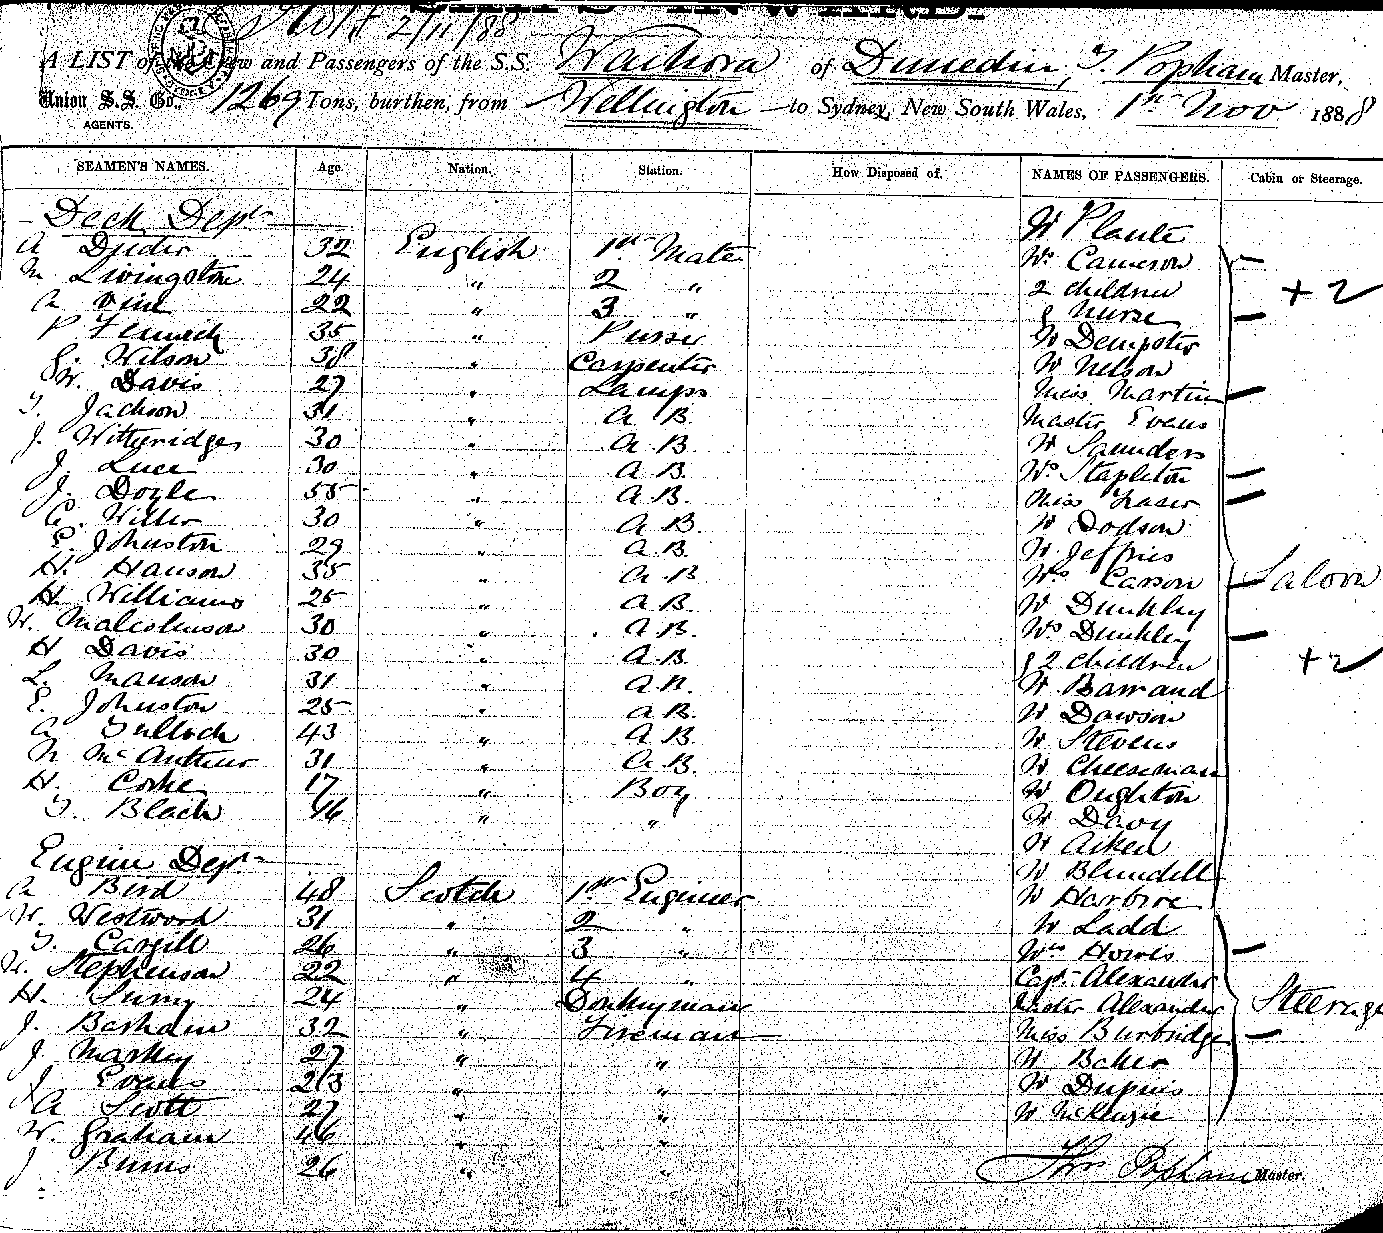 2/11/88
A LIST of the Crew and Passengers of the S.S. Waihora of Dunedin, T. Popham Master,
Union S.S. Co., 1269 Tons, burthen, from Wellington to Sydney, New South Wales, 1st Nov 1888
AGENTS.
SEAMEN'S NAMES. Age. Nation. Station. How Disposed of. NAMES OF PASSENGERS. Cabin or Steerage.
Deck Dept Mr Plante
A 32 English 1st Mate Mrs Cameron
M Livingstone 24 " 2 " 2 children + 2
A Vine 22 " 3 " & nurse
P Fenwick 35 " Purser Mr Dempster
G. Wilson 38 " Carpenter Mr Nelson
W. Davis 27 " Lamps Miss Martin
T. Jackson 31 " A B Master Evans
J. Witheridge 30 " A B Mr Saunders
J. Luce 30 " A B Mrs Stapleton
J. Doyle 55 " A B. Miss Fraser
C. Willer 30 " A B. Mr Dodson
E. Johnston 29 " A B. Mr Jeffries
H. Hanson 35 " A B Mrs Carson Saloon
H Williams 25 " A B. Mr Dunkley
W. 30 " A B. Mrs Dunkley
H Davis 30 " A B. & 2 children + 2
L. Manson 31 " A B. Mr Barraud
E. Johnston 25 " A B. Mr Dawson
A Tulloch 43 " A B. Mr Stevens
N McArthur 31 " A B. Mr Cheeseman
H. Corke 17 " Boy Mr Oughton
T. Black 16 " " Mr Davy
Mr Aiken
Engine Dept Mr Blundell
A Bird 48 Scotch 1st Engineer Mr
W. Westwood 31 " 2 " Mr Ladd
T. Cargill 26 " 3 " Mrs Howis
W. Stephenson 22 " 4 " Capt Alexander
H. 24 " Donkeyman Master Alexander Steerage
J. Basham 32 " Fireman Miss Burbridge
J Markey 27 " " Mr Baker
J Evans 23 " " Mr Dupuis
A Scott 27 " " Mr McKenzie
W. Graham 46 " "
J Burns 26 " " Thos Popham Master.